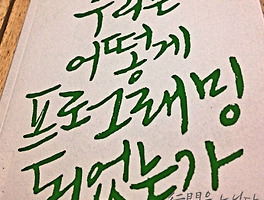 우리는
어떻게
프로그래밍
되었는가